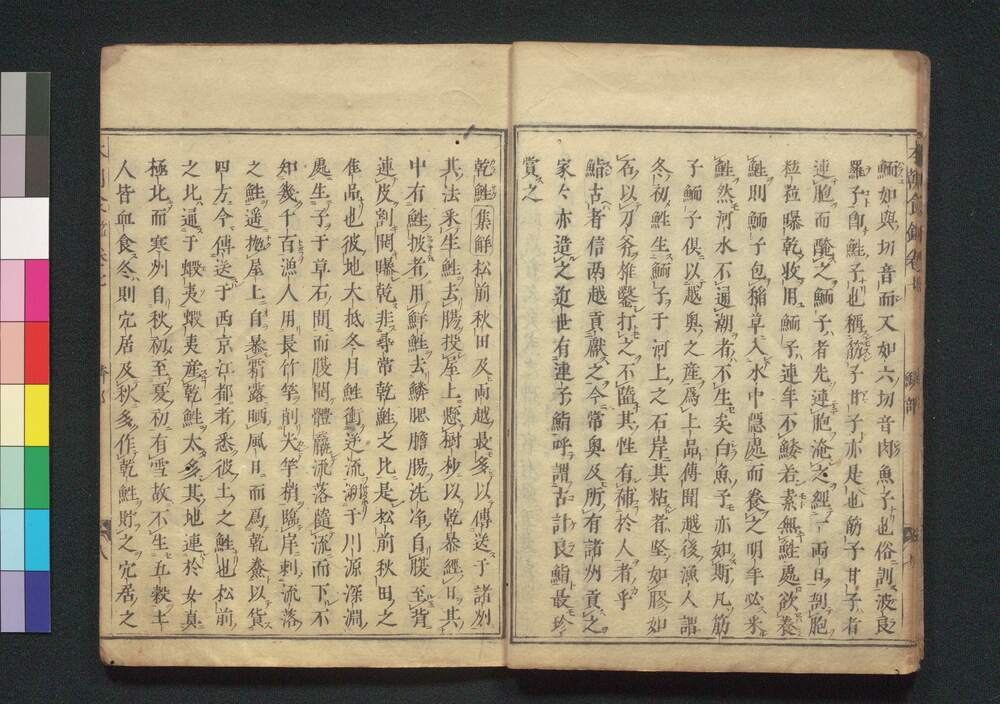 鮞如與切音而又如六切音肉魚子也俗訓波良
羅子自鮭子也稱筋子甘子亦是也筋子甘子者
連胞而醃之鮞子者先連胞淹之經一兩日割胞
粒粒曝乾收用鮞子連年不鯘若素無鮭處欲養
鮭則鮞子包稲草入水中隱處而養之明年必米
鮭然河水不通潮者不生矣白魚子亦如斯凡筋
子鮞子俱以奥之産爲上品傳聞越後漁人謂
冬初鮭生鮞子于河上之石岸其粘者堅如膠如
石以刀斧錐鑿打之不臨其性有補於人者乎
鮨古者信兩越貢獻之今常奥及所有諸州貢之
家々亦造之近世有連子鮨呼謂古計良鮨最珍
賞之
乾鮭集觧松前秋田及兩越最多以傳送于諸列
其法采生鮭去腸投屋上懸樹杪以乾暴經日其
中有鮭披者用鮮鮭去鱗腮膽腸洗净自腹至背
連皮割開曝乾非尋常乾鮭之比是松前秋田之
佳品也彼地大抵冬月鮭衝逆流泝于川源深淵
處生子于草石間而腹開體羸流落隨流而下不
知幾千百漁人用長竹竿削尖竿梢臨岸刺流落
之鮭遥抛屋上自暴霜露晒風日而爲乾鱶以貨
四方今傳送于西京江都者悉彼土之鮭也松前
之北通于蝦夷蝦夷産乾鮭太多其地連於女真
極北而寒列自秋初至夏初有雪故不生五穀土
人皆血食冬則宂居及秋多作乾鮭貯之宂居之